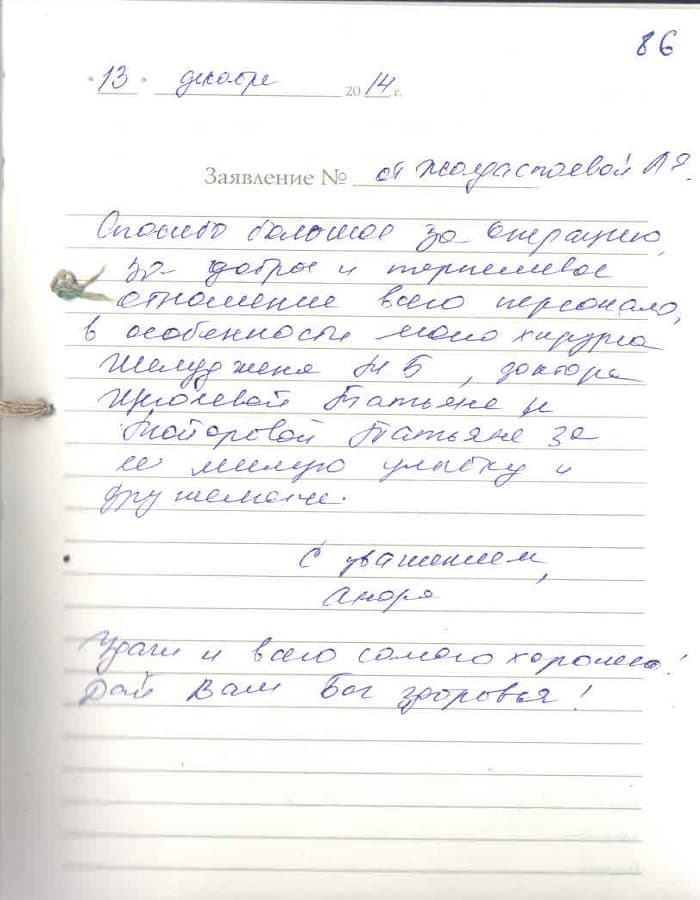 86
"13" декабре 2014 г.
Заявление № от Жолдаспоевой А Я.
Спосибо большое за операцию,
за доброе и терпеливое
отношение всего персонала,
в особенности моего хирурга
М Б, доктора
Татьяне и
Майоровой Татьяне за
ее милую улыбку и
С уважением,
Анора
Удачи и всего самого хорошего!
Дай Вам Бог здоровья!